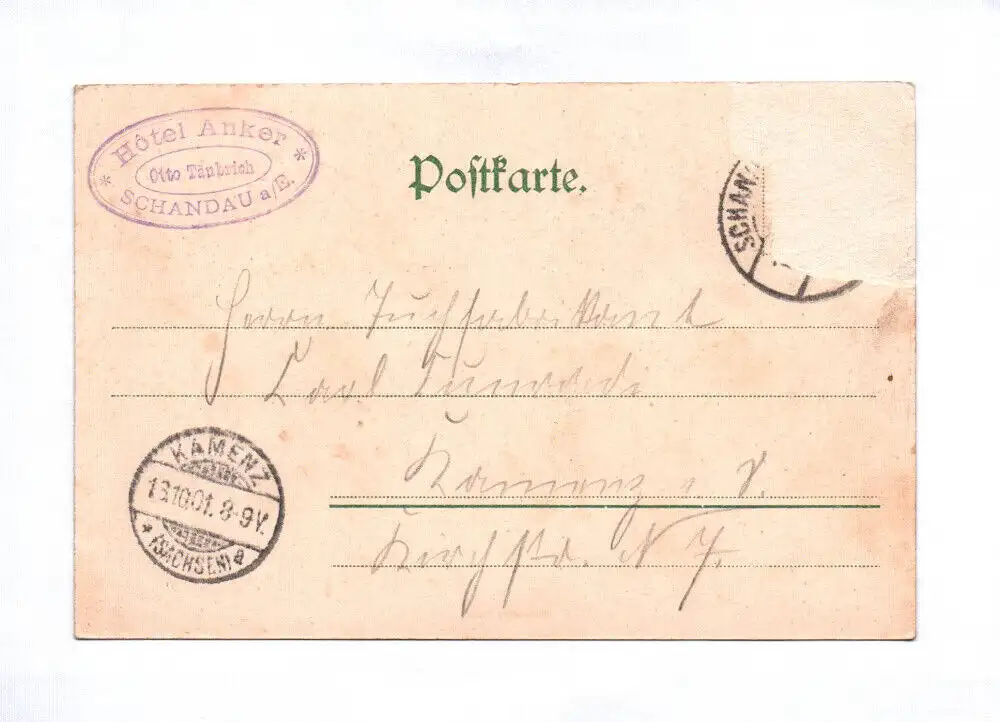 * Hôtel Anker *
Otto Täubrich
SCHANDAU a/E.
Postkarte.
SCHAN
Herrn Tuchfabrikant
Carl
Kamenz i. S.
Kirchstr. N 7.
KAMENZ
13.10.01. 8-9V.
* (SACHSEN) a